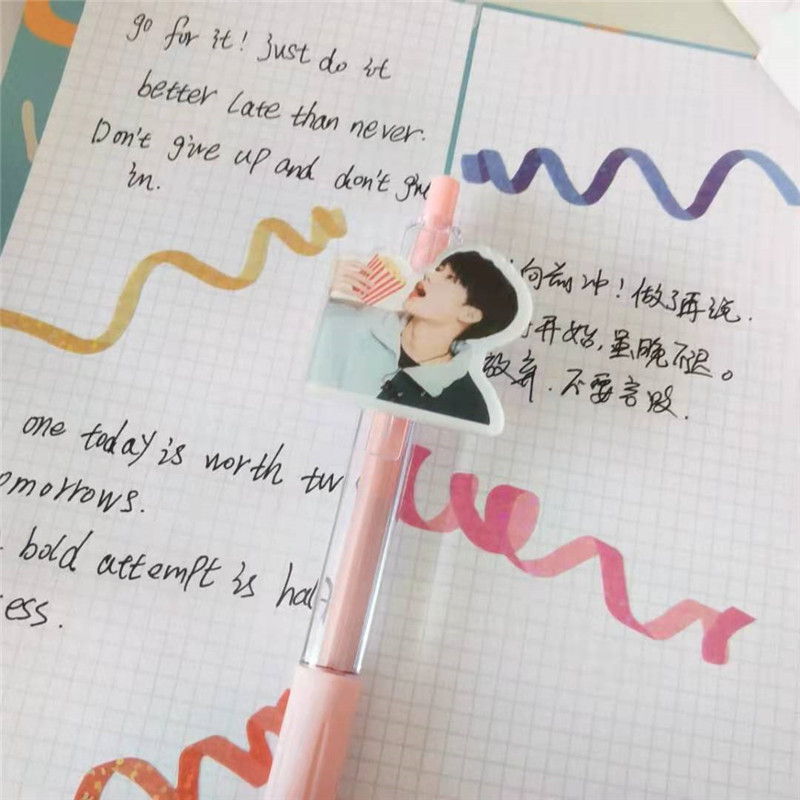 go for it! just do it
better late than never.
Don't give up and don't give
in.
向前冲！做了再说.
开始,虽晚不迟。
放弃.不要言败.
one today is worth
omorrows.
bold attempt is hal
ess.